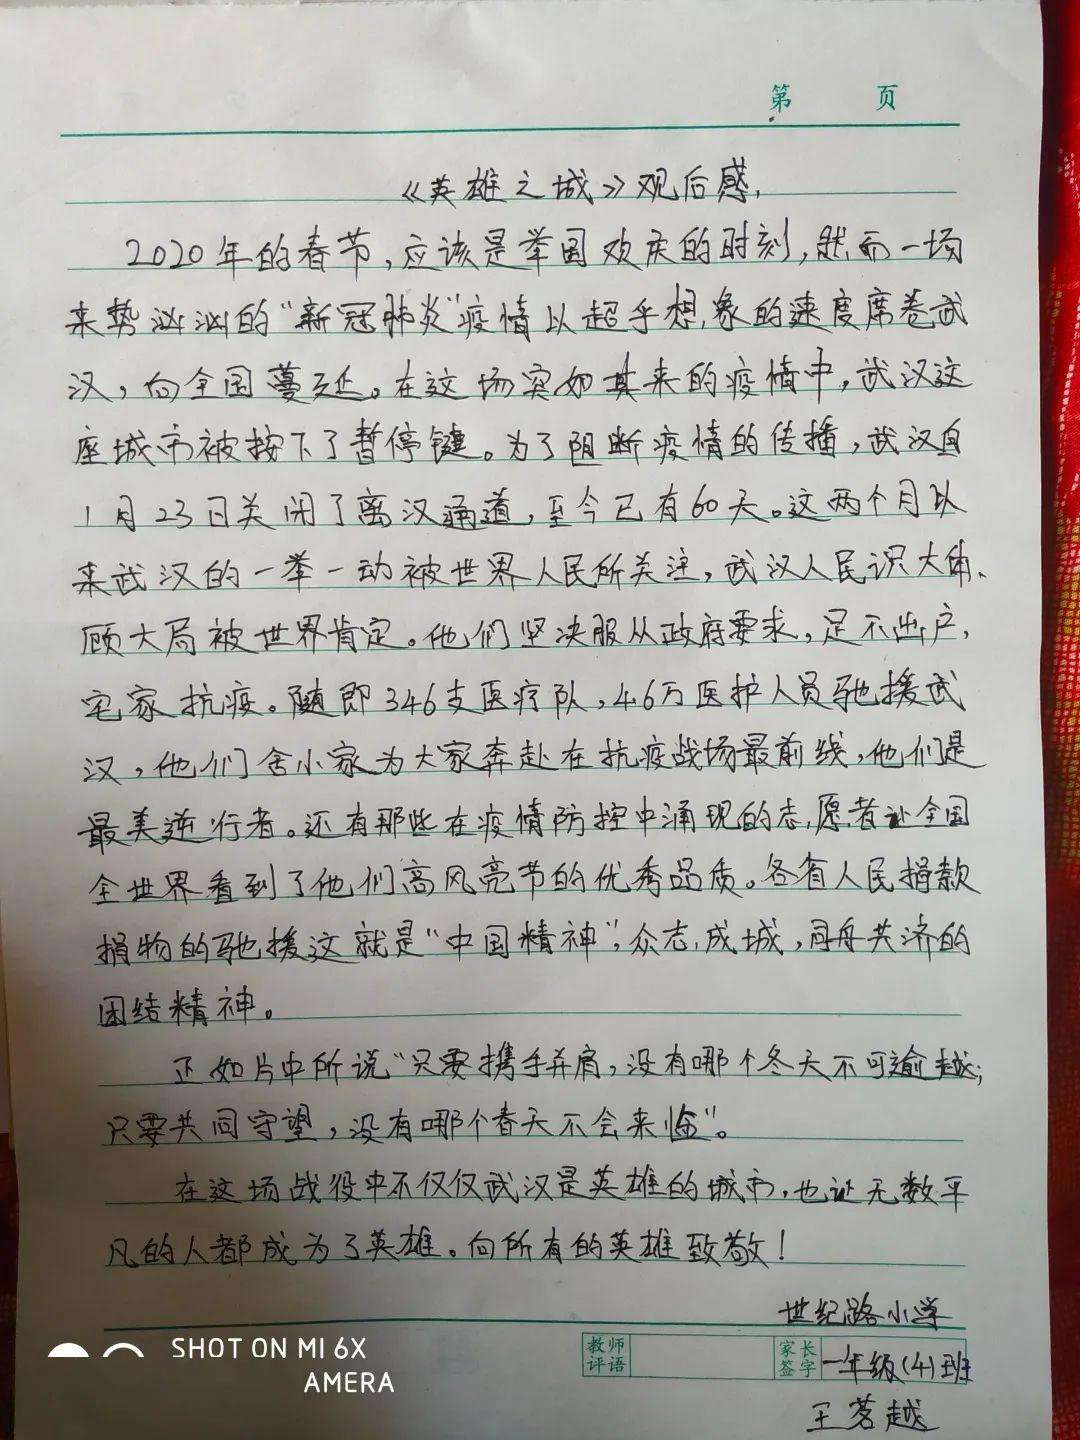 第 页
《英雄之城》观后感
2020年的春节，应该是举国欢庆的时刻，然而一场
来势汹汹的“新冠肺炎”疫情以超乎想象的速度席卷武
汉，向全国蔓延。在这场突如其来的疫情中，武汉这
座城市被按下了暂停键。为了阻断疫情的传播，武汉自
1月23日关闭了离汉通道，至今已有60天。这两个月以
来武汉的一举一动被世界人民所关注，武汉人民识大体、
顾大局被世界肯定。他们坚决服从政府要求，足不出户，
宅家抗疫。随即346支医疗队，4.6万医护人员驰援武
汉，他们舍小家为大家奔赴在抗疫战场最前线，他们是
最美逆行者。还有那些在疫情防控中涌现的志愿者让全国
全世界看到了他们高风亮节的优秀品质。各省人民捐款
捐物的驰援这就是“中国精神”，众志成城，同舟共济的
团结精神。
正如片中所说“只要携手并肩，没有哪个冬天不可逾越；
只要共同守望，没有哪个春天不会来临”。
在这场战役中不仅仅武汉是英雄的城市，也让无数平
凡的人都成为了英雄。向所有的英雄致敬！
世纪路小学
教师评语 家长签字 一年级（4）班
王茗越
SHOT ON MI 6X
AMERA